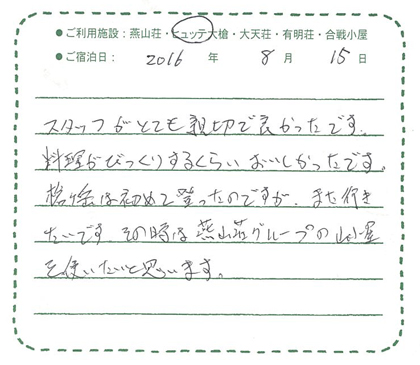 ●ご利用施設：燕山荘・ヒュッテ大槍・大天荘・有明荘・合戦小屋
●ご宿泊日： 2016 年 8 月 15 日
スタッフがとても親切で良かったです。
料理がびっくりするくらいおいしかったです。
槍ヶ岳は初めて登ったのですが、また行き
たいです その時は燕山荘グループの山小屋
を使いたいと思います。